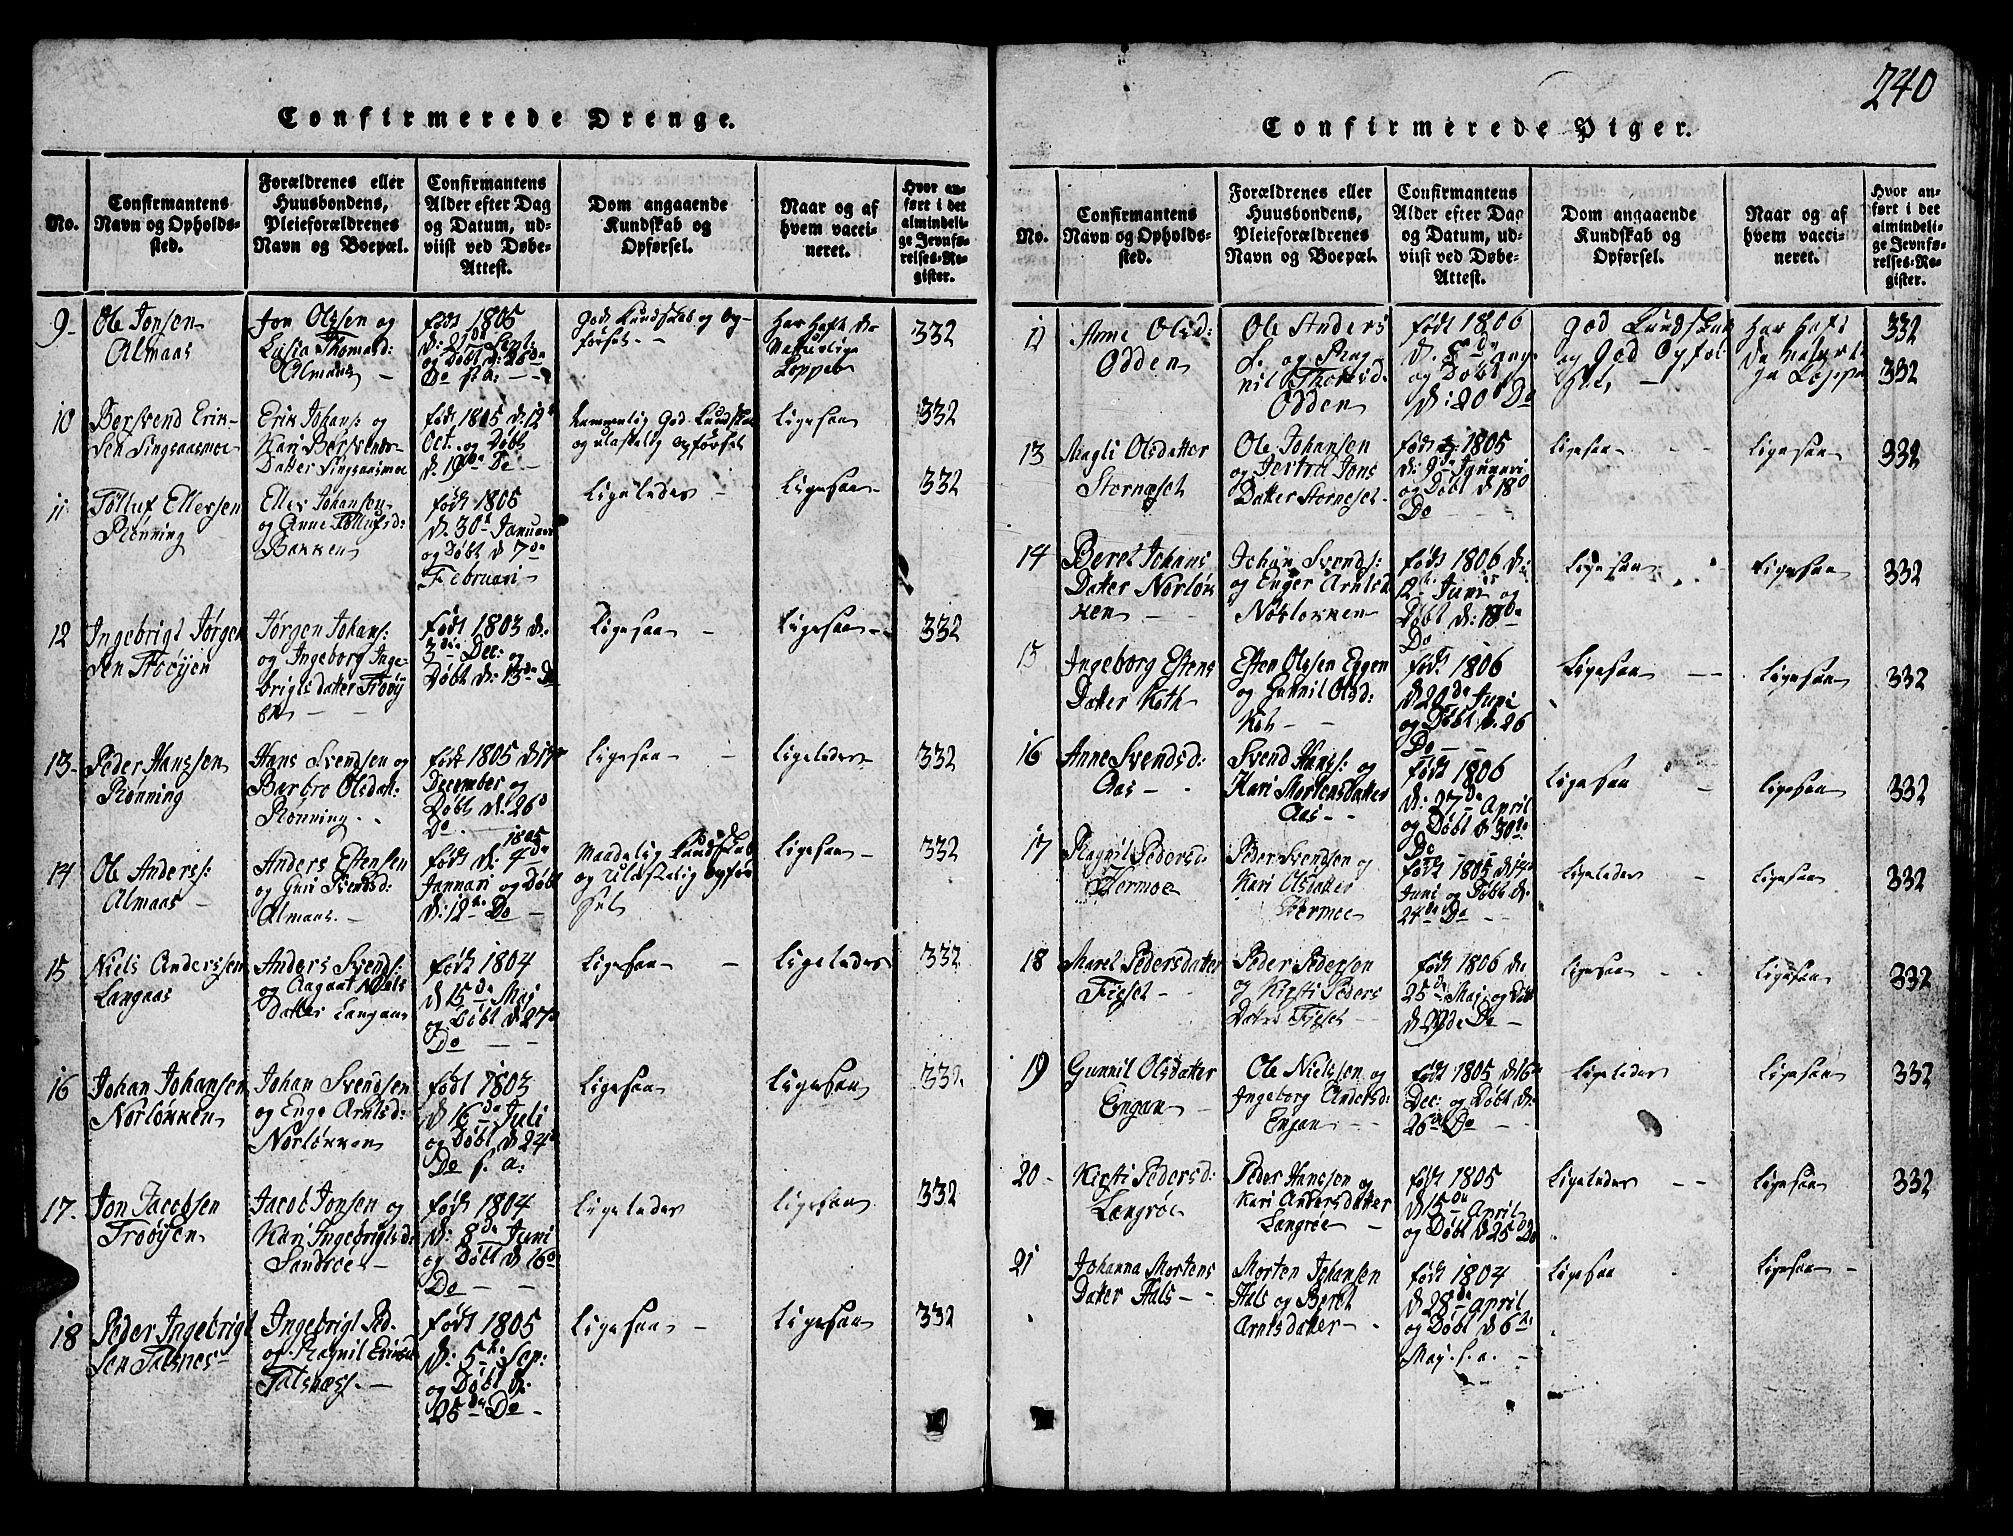 240
Confirmerede Drenge.
No.
Confirmantens
Navn og Opholds-
sted.
Forældrenes eller
Huusbondens,
Pleieforældrenes
Navn og Boepæl.
Confirmantens
Alder efter Dag
og Datum, ud-
viist ved Døbe-
Attest.
Dom angaaende
Kundskab og
Opførsel.
Naar og af
hvem vacci-
neret.
Hvor an-
ført i det
almindeli-
ge Jevnfø-
relses-Re-
gister.
9-
Ole Jonsen
Almaas
Jon Olssen og
Lusia Thomasd:
Almaas
født 1805
d: 21de Sept:
og Døbt d: 28de
Do s. a:
god Kundskab og Op-
førsel
Har Hafte de
Naturlige
Kopper
332
10
Bersvend Erik-
sen Singsaasmoe
Erik Johans: og
Kari Bersvends-
Datter Singsaasmoe
født 1805 d: 12te
Oct. og Døbt
d. 19de Do
Nemmelig God Kundskab
og ulastelig Opførsel
Ligesaa
332
11
Tølluf Ellersen
Rønning
Eller Johansen
og Anne Tøllufsd:
Bakken
født 1805
d. 30te Januar
og Døbt d 7de
Februari
Ligeledes
Ligesaa
332
12
Ingebrigt Jørgen
sen Trøøyen
Jørgen Johans:
og Ingeborg Inge-
brigtsdatter Trøøy
en
født 1803 d.
3die Dec: og
Døbt d: 13de Do
Ligesaa
Ligesaa
332
13-
Peder Hanssen
Rønning
Hans Svendsen og
Barbro Olsdatt:
Rønning
født 1805 d 17de
December og
Døbt d: 26d
Do
Ligesaa
Ligeledes
332
14
Ole Anders:
Almaas
Anders Estensen
og Guri Svendsd:
Almaas
1805
født d: 4de
Januari og Døbt
d: 12de Do
Maadelig Kundskab
og Ulastelig Opfør
sel
Ligesaa
332
15
Niels Anderssen
Langaas
Anders Svends:
og Aagaat Niels
Datter Langaas
født 1804
d 15de Maj
og Døbt d: 27d
Do
Ligesaa
Ligeledes
332
16
Johan Johansen
Norløkken
Johan Svendsen
og Enge Arntsd:
Norløkken
født 1803
d 16de Juli
og Døbt d 24de
Do s. a:
Ligesaa
Ligesaa
332
17.
Jon Jacobsen
Trøøyen
Jacob Jonsen og
Kari Ingebrigtsd:
Sandroe
født 1804
d: 8de Juni
og Døbt d 16de
Do
Ligeledes
Ligesaa
332
18
Peder Ingebrigt
sen Talsnes
Ingebrigt Ped.
og Ragnil Ericsd
Talsnæss.
født 1805
d: 5te Sep:
og Døbt d:
25de Do
Ligesaa
Ligesaa
332
Confirmerede Piger.
No.
Confirmantens
Navn og Opholds-
sted.
Forældrenes eller
Huusbondens,
Pleieforældrenes
Navn og Boepæl.
Confirmantens
Alder efter Dag
og Datum, ud-
viist ved Døbe-
Attest.
Dom angaaende
Kundskab og
Opførsel.
Naar og af
hvem vacci-
neret.
Hvor an-
ført i det
almindeli-
ge Jevnfø-
relses-Re-
gister.
12
Anne Olsd:
Odden
Ole Anders
S. og Rag
nil Thoresd.
Odden
født 1806
d. 8de
og Døbt
d: 20 Do
God Kundskab
og God Opfør
sel,
Har haft
de naturli
ge Koppe
332
332
13
Magli Olsdatter
Stornæset
Ole Johansen
og Jertru Jons
Datter Storneset
født 1805
d: 9de Januari
og Døbt d 18d
Do
Ligesaa
Ligesaa
332
14
Beret Johans
Datter Norløk
ken
Johan Svends:
og Enger Arntsd
Norløkken
født 1806 d:
12te Juni og
Døbt d: 18de
Do
Ligesaa
Ligesaa
332
15
Ingeborg Estens
Datter Koth
Esten Olssen Eggen
og Gunnil Olsd:
Kot
født 1806
d 20de Juni
og Døbt d. 26
Do
Ligesaa
Ligesaa
332
16
Anne Svendsd:
Aas
Svend Hans: og
Kari Mortensdatter
Aas
født 1806
d: 27de April
og Døbt d 30te
Do
Ligesaa
Ligesaa
332
17
Ragnil Pedersd:
Hermoe
Peder Svendsen og
Kari Olsdatter
Hermoe
født 1805 d 14de
Juni og Døbt d:
24de Do
Ligeledes
Ligesaa
332
18
Maret Pedersdatter
Fieset
Peder Pedersen
og Kirsti Peders
Datter Fieset
født 1806 d:
25de Maj og Døbt
Ligesaa
Ligesaa
332
19
Gunnil Olsdatter
Engan
Ole Nielssen og
Ingeborg Andersd:
Engan
født 1805 d 16de
Dec: og Døbt d:
26de Do
Ligeledes
Ligesaa
332
20
Kirsti Pedersd:
Langrøe
Peder Hanssen og
Kari Andersdatter
Langrøe
født 1805
d 15de April
og Døbt d 25d Do
Ligeledes
Ligesaa
332
21
Johanna Mortens
Datter Hals
Morten Johansen
Hals og Beret
Arntsdatter
født 1804
d 28de April
og Døbt d 6te
Maj. s. a.
Ligesaa
Ligesaa